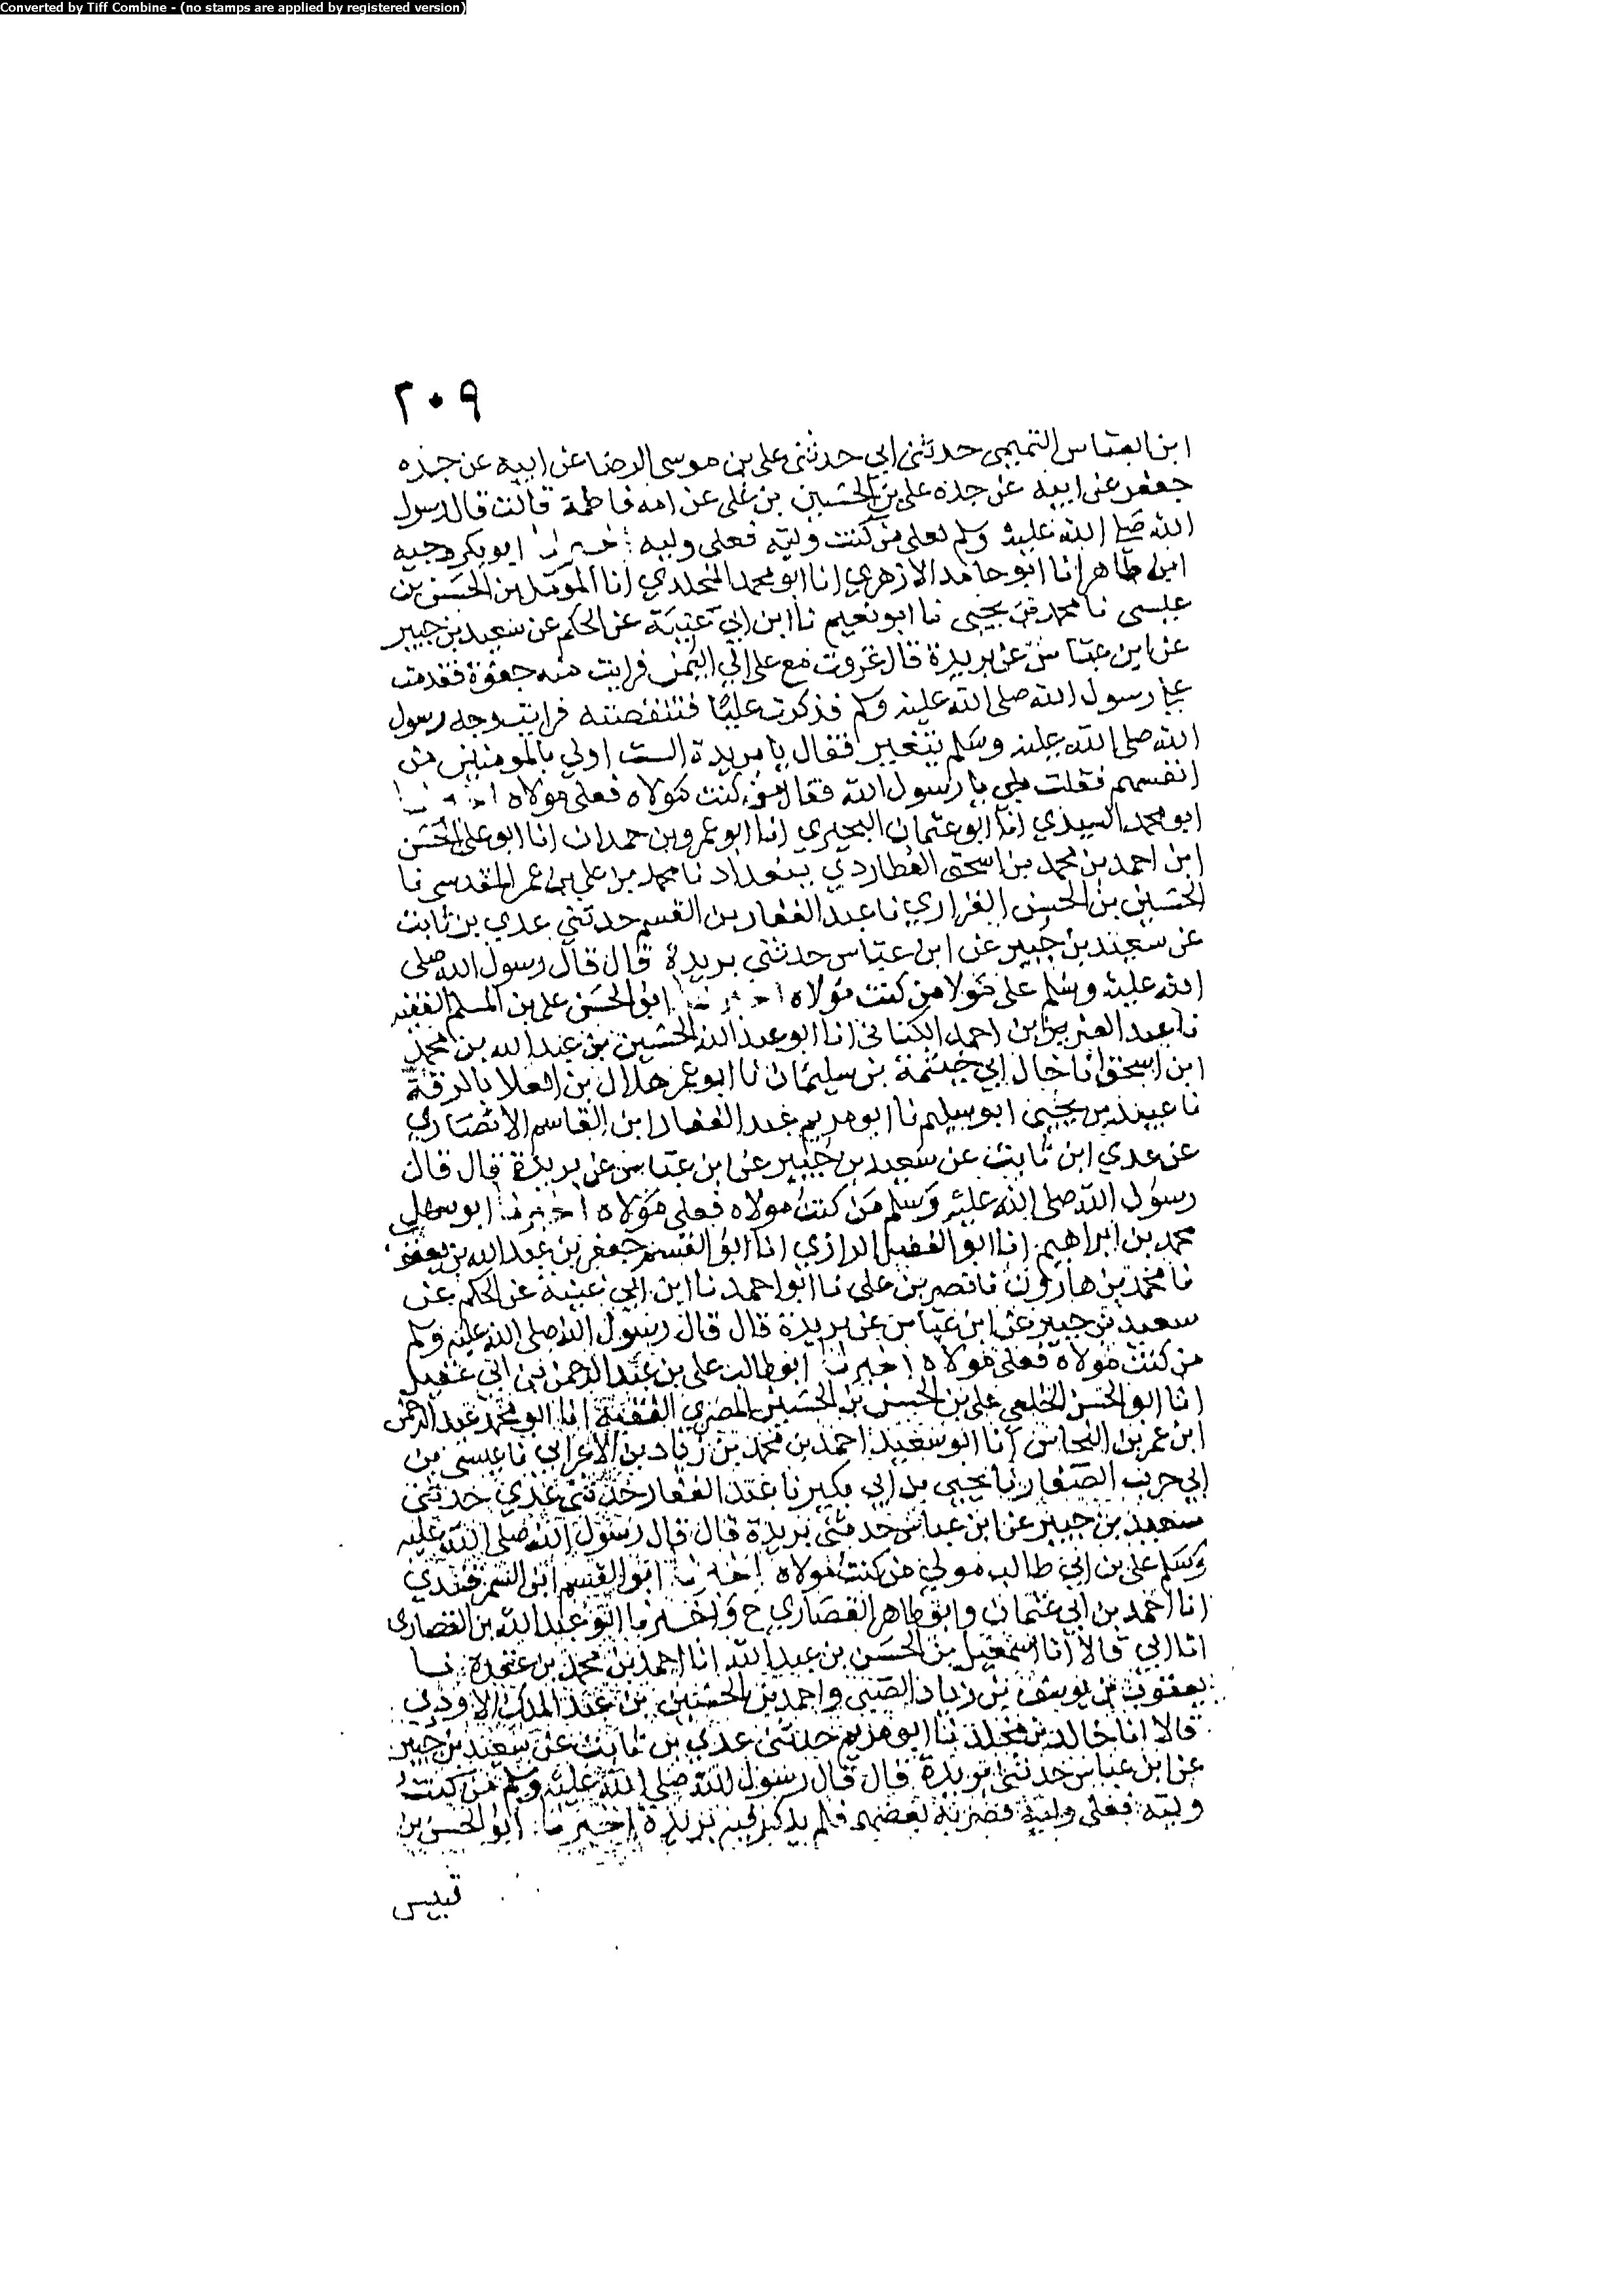 Converted by Tiff Combine - (no stamps are applied by registered version)
٢٠٩
ابن العباس التميمي حدثني ابي حدثني علي بن موسى الرضا عن ابيه عن جده
جعفر عن ابيه عن جده علي بن الحسين بن علي عن امه فاطمة قالت قال رسول
الله صلى الله عليه وسلم لعلي من كنت وليه فعلي وليه اخبرنا ابو بكر وجيه
ابن طاهر انا ابو حامد الازهري انا ابو محمد المخلدي انا المومل بن الحسن بن
عيسى نا محمد بن يحيى نا ابو نعيم نا ابن ابي عنية عن الحكم عن سعيد بن جبير
عن ابن عباس عن بريدة قال غزوت مع علي الي اليمن فرايت منه جفوة فقدمت
علي رسول الله صلى الله عليه وسلم فذكرت عليا فتنقصته فرايت وجه رسول
الله صلى الله عليه وسلم يتغير فقال يا بريدة الست اولي بالمومنين من
انفسهم فقلت بلي يا رسول الله فقال من كنت مولاه فعلي مولاه اخبرنا
ابو محمد السيدي انا ابو عثمان البحيري انا ابو عمرو بن حمدان انا ابو علي الحسن
ابن احمد بن محمد بن اسحق العطاردي ببغداد نا محمد بن علي بن عمر المقدسي نا
الحسين بن الحسن الفزاري نا عبد الغفار بن القسم حدثني عدي بن ثابت
عن سعيد بن جبير عن ابن عباس حدثني بريدة قال قال رسول الله صلى
الله عليه وسلم علي مولا من كنت مولاه اخبرنا ابو الحسن علي بن المسلم الفقيه
نا عبد العزيز بن احمد الكتاني انا ابو عبد الله الحسين بن عبد الله بن محمد
ابن اسحق انا خال ابي خيثمة بن سليمان نا ابو عمر هلال بن العلا بالرقة
نا عبيد بن يحيى ابو سليم نا ابو مريم عبد الغفار ابن القاسم الانصاري
عن عدي ابن ثابت عن سعيد بن جبير عن ابن عباس عن بريدة قال قال
رسول الله صلى الله عليه وسلم من كنت مولاه فعلي مولاه اخبرنا ابو سهل
محمد بن ابراهيم انا ابو الفضل الرازي انا ابو القسم جعفر بن عبد الله بن يعقوب
نا محمد بن هارون نا نصر بن علي نا ابو احمد نا ابن ابي عنية عن الحكم عن
سعيد بن جبير عن ابن عباس عن بريدة قال قال رسول الله صلى الله عليه وسلم
من كنت مولاه فعلي مولاه اخبرنا ابو طالب علي بن عبد الرحمن بن ابي عقيل
انا ابو الحسن الخلعي علي بن الحسن بن الحسين المصري الفقيه انا ابو محمد عبد الرحمن
ابن عمر بن النحاس انا ابو سعيد احمد بن محمد بن زياد بن الاعرابي نا عيسى بن
ابي حرب الصفار نا يحيى بن ابي بكير نا عبد الغفار حدثني عدي حدثني
سعيد بن جبير عن ابن عباس حدثني بريدة قال قال رسول الله صلى الله عليه
وسلم علي بن ابي طالب مولي من كنت مولاه اخبرنا ابو القسم ابن السمرقندي
انا احمد بن ابي عثمان وابو طاهر القصاري ح واخبرنا ابو عبد الله بن القصاري
انا ابي قالا انا اسمعيل بن الحسن بن عبد الله انا احمد بن محمد بن عقدة نا
يعقوب بن يوسف بن زياد الضبي واحمد بن الحسين بن عبد الملك الاودي
قالا انا خالد بن مخلد نا ابو مريم حدثني عدي بن ثابت عن سعيد بن جبير
عن ابن عباس حدثني بريدة قال قال رسول الله صلى الله عليه وسلم من كنت
وليه فعلي وليه قصر به بعضهم فلم يذكر فيه بريدة اخبرنا ابو الحسن بن
قبيس